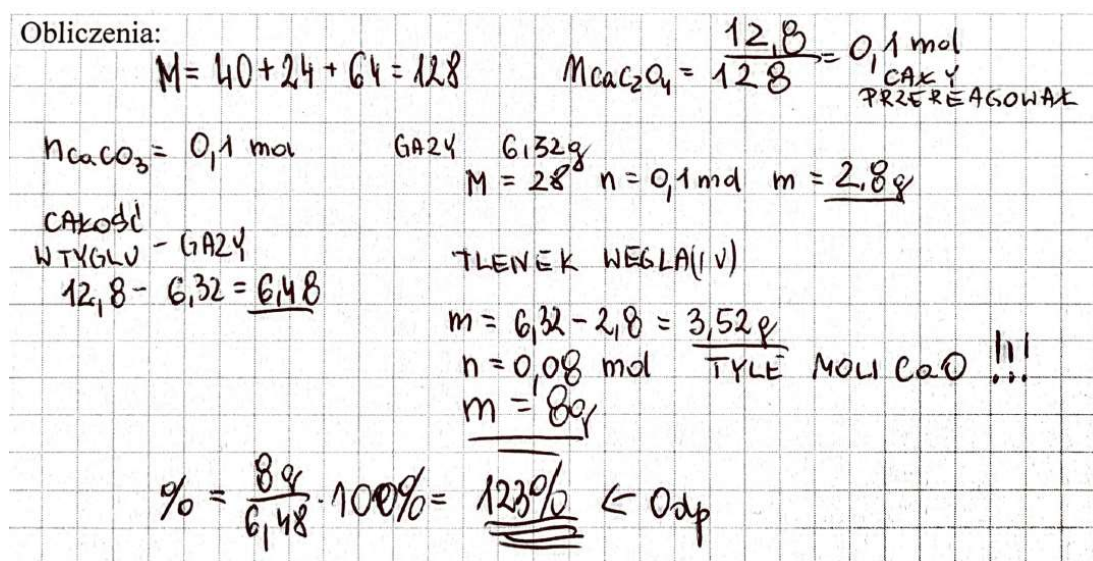 Obliczenia:
M = 40 + 24 + 64 = 128
nCaC₂O₄ = 12,8 / 128 = 0,1 mol
CAŁY
PRZEREAGOWAŁ
nCaCO₃ = 0,1 mol
GAZY 6,32g
M = 28 n = 0,1 mol m = 2,8g
CAŁOŚĆ
W TYGLU - GAZY
12,8 - 6,32 = 6,48
TLENEK WEGLA(IV)
m = 6,32 - 2,8 = 3,52g
n = 0,08 mol TYLE MOLI CaO !!!
m = 8g
% = 8g / 6,48 · 100% = 123% ← Odp